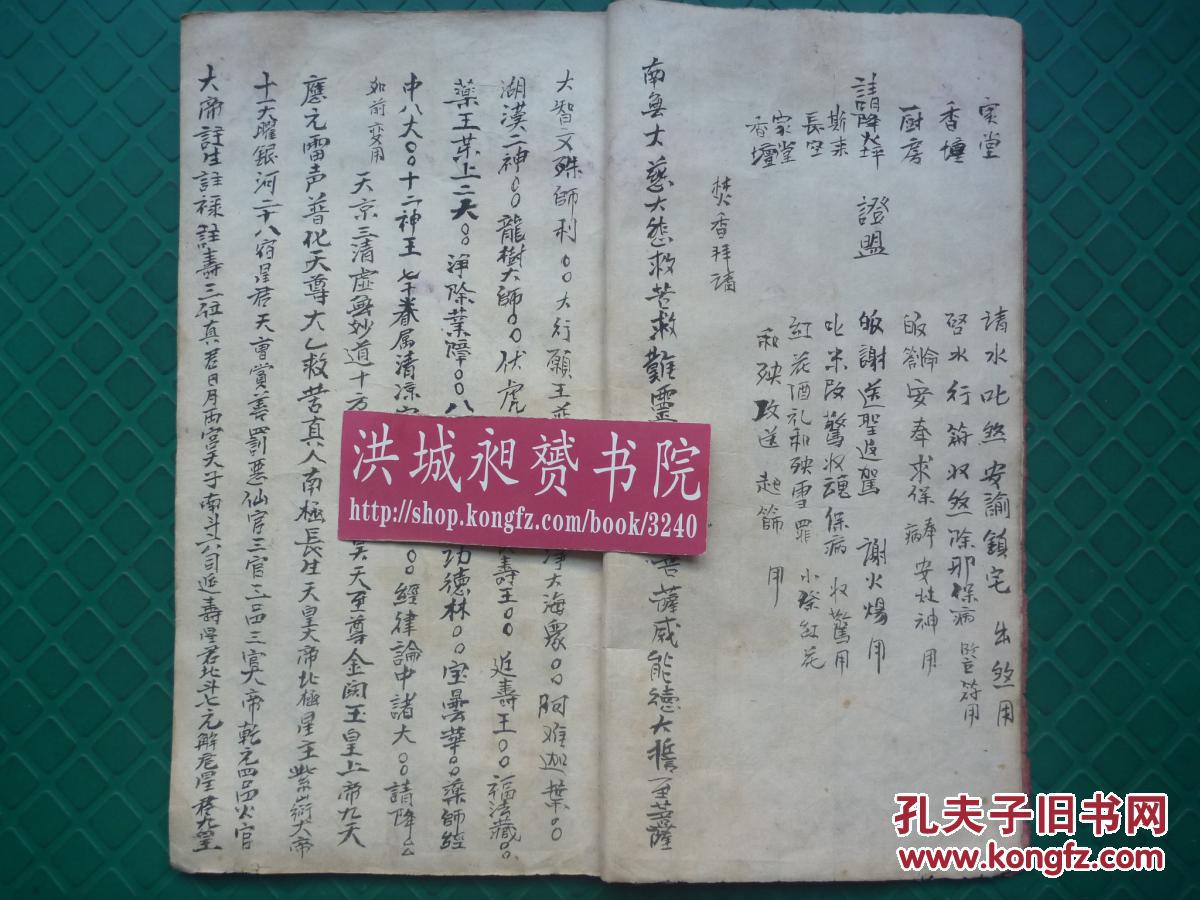 家堂
香壇
厨房
請降火坪 證盟
斯来
長空
家堂
香壇
請水叱煞安諭鎮宅 出煞用
啓水行符收煞除邪保病 用
安奉求保病 奉安灶神用
皈謝送聖返駕 謝火煬用
叱米改驚收魂保病 收驚用
紅花酒礼和殃雪罪 小祭紅花
和殃改送起節 用
焚香拜請
南無大慈大悲救苦救難靈 菩薩威能德大
大智文殊師利〇〇大行願王 净大海衆〇〇阿难迦葉〇〇
湖漠二神〇〇龍樹大師〇〇伏虎 壽王〇〇延壽王〇〇福法藏〇〇
藥王菜上二天〇〇淨除業障〇〇八 功德林〇〇宝曇華〇〇藥師經
中八大〇〇十二神王七千眷属清凉 〇〇經律論中諸大〇〇請降
如前奕用
天京三清虚無妙道十方 昊天至尊金闕玉皇上帝九天
應元雷声普化天尊大乙救苦真人南極長生天皇大帝北極星主紫微大帝
十一大曜銀河二十八宿星君天曹賞善罰惡仙官三官三品三官大帝乾元四品火官
大帝註生註禄註壽三位真君日月両宫天子南斗六司延壽星君北斗七元解厄星君九皇
洪城昶赟书院
http://shop.kongfz.com/book/3240
孔夫子旧书网
www.kongfz.com